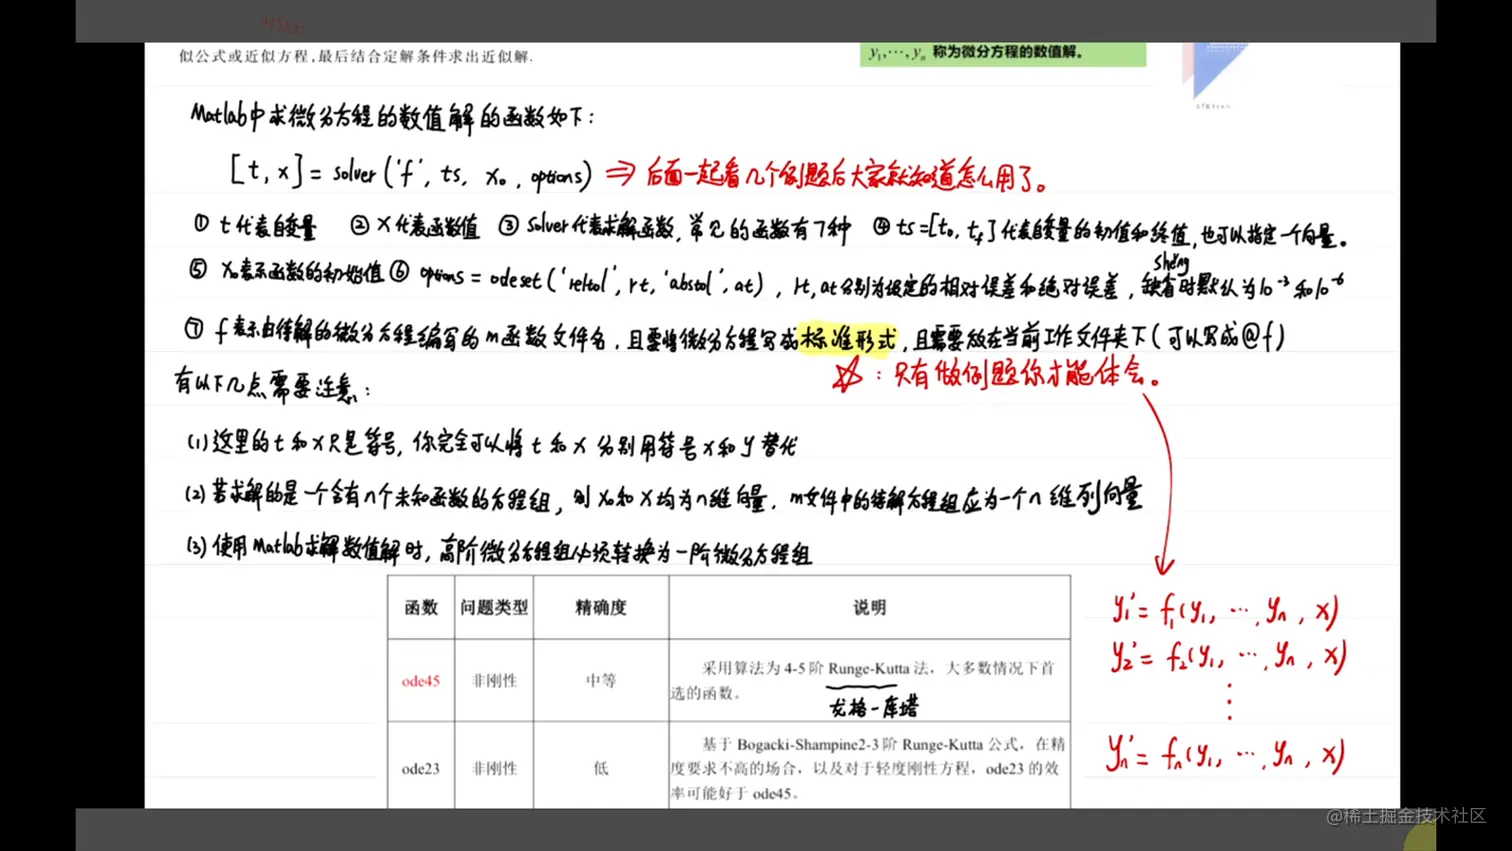 似公式或近似方程,最后结合定解条件求出近似解.
y₁,⋯,yₙ 称为微分方程的数值解。
Matlab中求微分方程的数值解的函数如下:
[t,x]=solver('f',ts,x₀,options) ⇒ 后面一起看几个例题后大家就知道怎么用了。
① t代表自变量 ② x代表函数值 ③ Solver代表求解函数,常见的函数有7种 ④ ts=[t₀,t_f]代表自变量的初值和终值,也可以指定一个向量。
shěng
⑤ x₀表示函数的初始值 ⑥ options=odeset('reltol',rt,'abstol',at),rt,at分别为设定的相对误差和绝对误差,缺省时默认为10⁻³和10⁻⁶
⑦ f表示由待解的微分方程编写的m函数文件名,且要将微分方程写成标准形式,且需要放在当前工作文件夹下(可以写成@f)
☆:只有做例题你才能体会。
有以下几点需要注意:
(1)这里的t和x只是符号,你完全可以将t和x分别用符号x和y替代
(2)若求解的是一个含有n个未知函数的方程组,则x₀和x均为n维向量,m文件中的待解方程组应为一个n维列向量
(3)使用Matlab求解数值解时,高阶微分方程组必须转换为一阶微分方程组
函数 问题类型 精确度 说明
ode45 非刚性 中等 采用算法为 4-5阶 Runge-Kutta 法，大多数情况下首
选的函数。
龙格-库塔
ode23 非刚性 低 基于 Bogacki-Shampine2-3阶 Runge-Kutta 公式，在精
度要求不高的场合，以及对于轻度刚性方程，ode23 的效
率可能好于 ode45。
y₁'=f₁(y₁,⋯,yₙ,x)
y₂'=f₂(y₁,⋯,yₙ,x)
⋮
yₙ'=fₙ(y₁,⋯,yₙ,x)
@稀土掘金技术社区